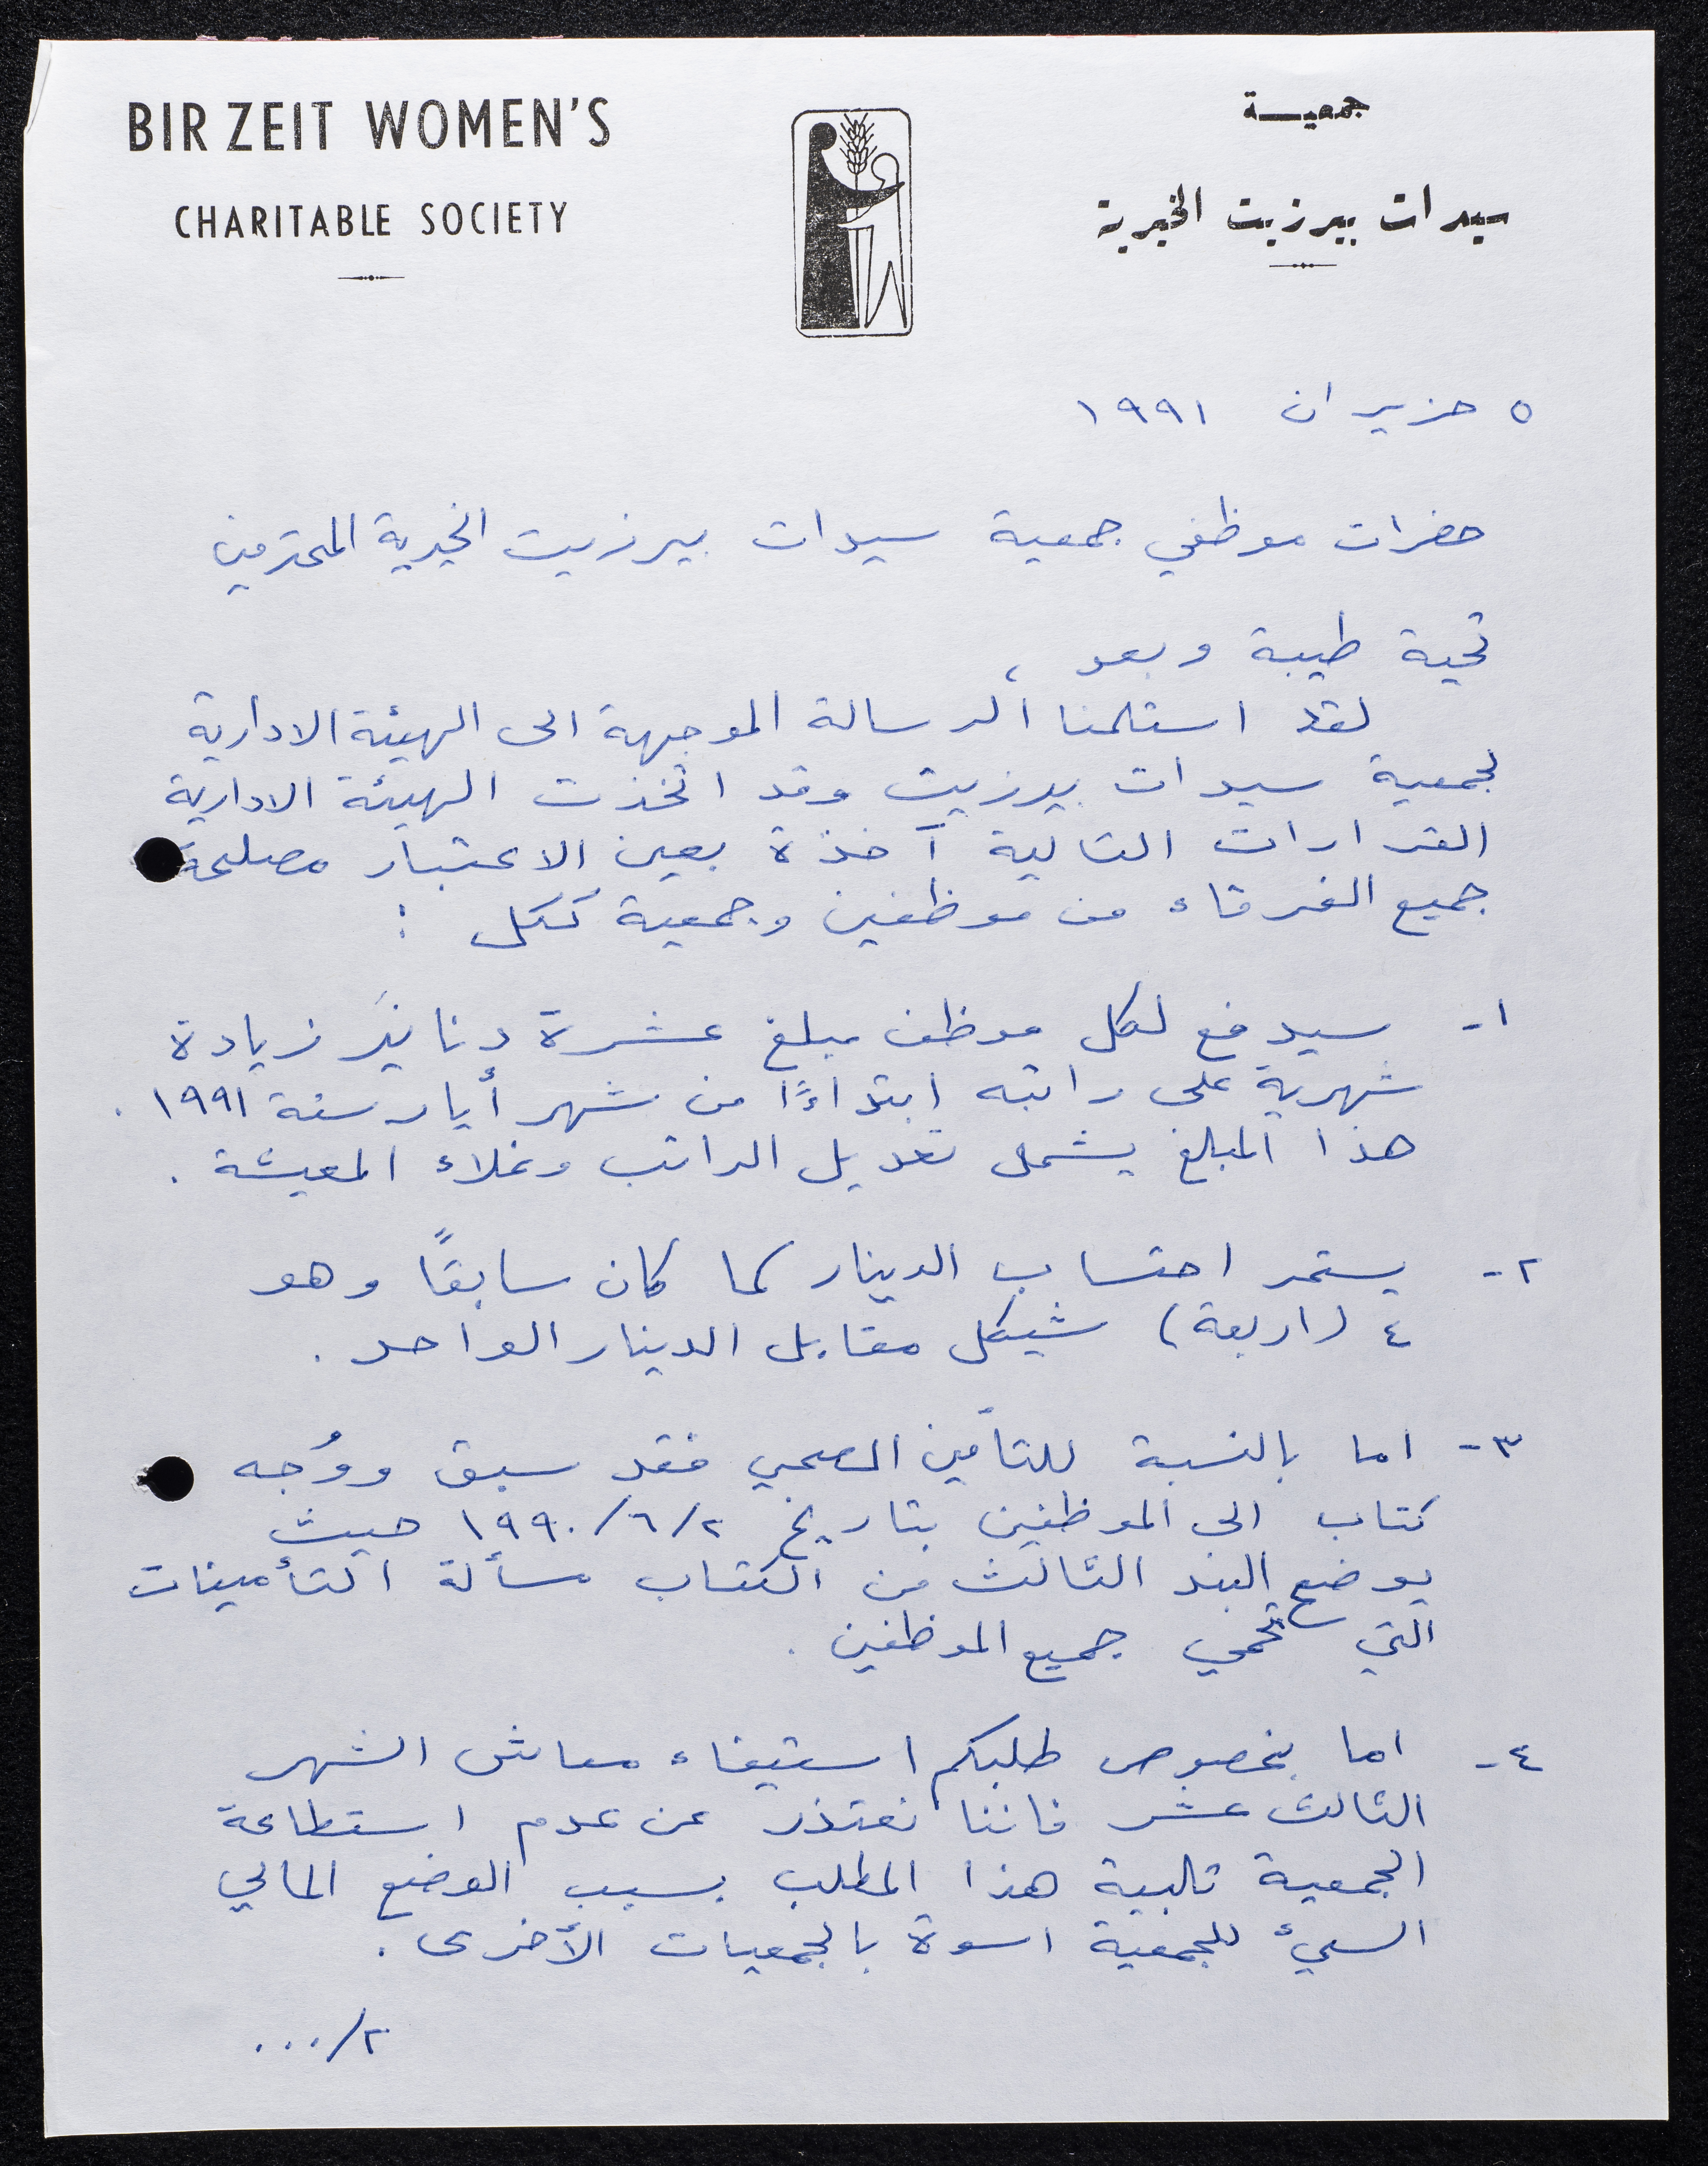 BIR ZEIT WOMEN'S
CHARITABLE SOCIETY
جمعيـــة
سيدات بيرزيت الخيرية
٥ حزيران ١٩٩١
حضرات موظفي جمعية سيدات بيرزيت الخيرية المحترمين
تحية طيبة وبعد ،
لقد استلمنا الرسالة الموجهة الى الهيئة الادارية
لجمعية سيدات بيرزيت وقد اتخذت الهيئة الادارية
القرارات التالية آخذة بعين الاعتبار مصلحة
جميع الفرقاء من موظفين وجمعية ككل :
١- سيدفع لكل موظف مبلغ عشرة دنانير زيادة
شهرية على راتبه ابتداءً من شهر أيار سنة ١٩٩١ .
هذا المبلغ يشمل تعديل الراتب وغلاء المعيشة .
٢- يستمر احتساب الدينار كما كان سابقًا وهو
٤ (اربعة) شيكل مقابل الدينار الواحد .
٣- اما بالنسبة للتأمين الصحي فقد سبق ووُجه
كتاب الى الموظفين بتاريخ ٢/٦/١٩٩٠ حيث
يوضح البند الثالث من الكتاب مسألة التأمينات
التي تحمي جميع الموظفين .
٤- اما بخصوص طلبكم استيفاء معاش الشهر
الثالث عشر فاننا نعتذر عن عدم استطاعة
الجمعية تلبية هذا المطلب بسبب الوضع المالي
السيئ للجمعية اسوة بالجمعيات الأخرى .
٢/...